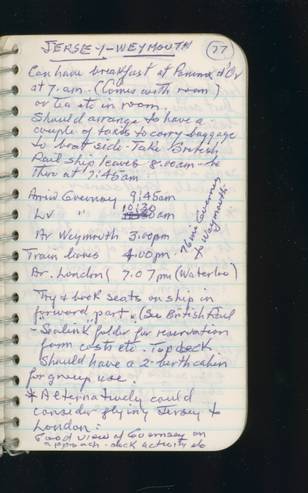 JERSEY-WEYMOUTH 77
Can have breakfast at Pomme d'Or
at 7. am. (Comes with room)
or tea etc in room.
Should arrange to have a
couple of taxis to carry baggage
to boat side. Take British
Rail ship leaves 8:00am - be
there at 7:45am
Arrive Guernsey 9:45am
Lv " 10:30am
Ar Weymouth 3:00pm
76 mi Guernsey
to Weymouth
Train leaves 4:00pm
Ar. London 7.07pm (Waterloo)
Try & book seats on ship in
forward part. (See British Rail
- Sealink folder for reservation
form costs etc. Top deck
Should have a 2-berth cabin
for group use.
* Alternatively could
consider flying Jersey to
London.
Good view of Guernsey on
approach - dock activity etc